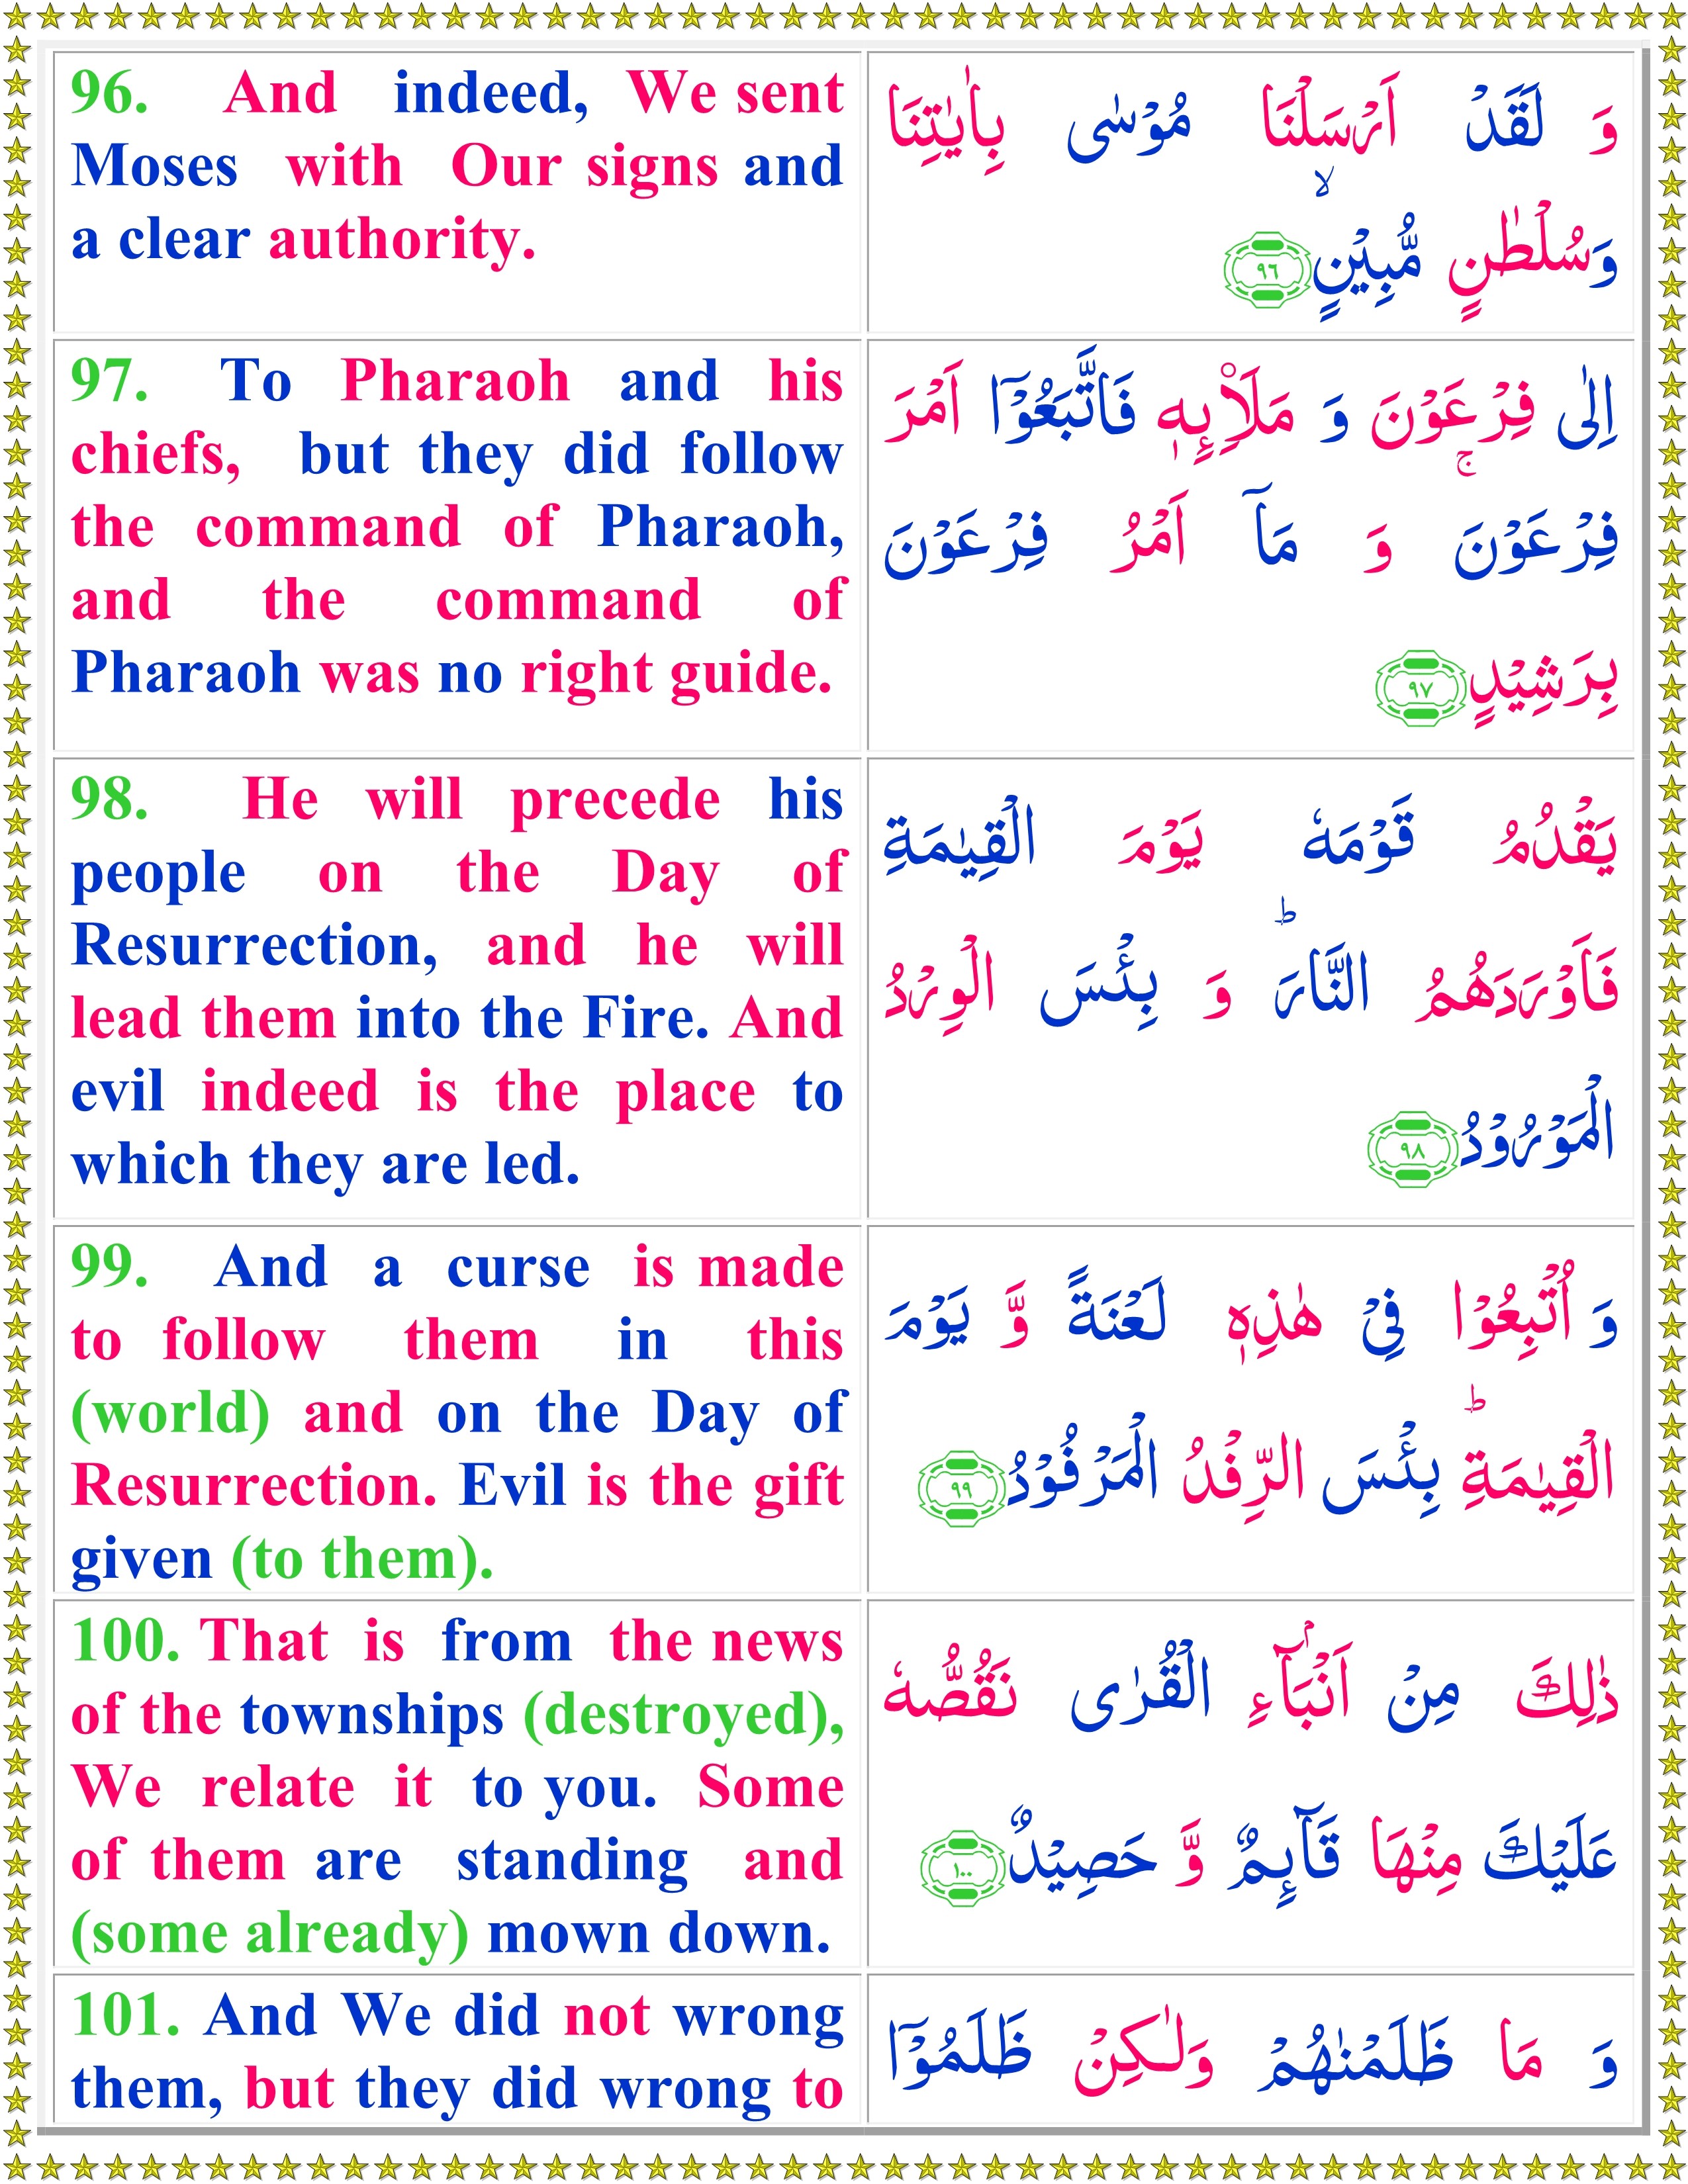 96. And indeed, We sent
Moses with Our signs and
a clear authority.
وَ لَقَدۡ اَرۡسَلۡنَا مُوۡسٰی بِاٰیٰتِنَا
وَسُلۡطٰنٍ مُّبِیۡنٍ ۙ ﴿۹۶﴾
97. To Pharaoh and his
chiefs, but they did follow
the command of Pharaoh,
and the command of
Pharaoh was no right guide.
اِلٰی فِرۡعَوۡنَ وَ مَلَا۠ئِہٖ فَاتَّبَعُوۡۤا اَمۡرَ
فِرۡعَوۡنَ ۚ وَ مَاۤ اَمۡرُ فِرۡعَوۡنَ
بِرَشِیۡدٍ ﴿۹۷﴾
98. He will precede his
people on the Day of
Resurrection, and he will
lead them into the Fire. And
evil indeed is the place to
which they are led.
یَقۡدُمُ قَوۡمَہٗ یَوۡمَ الۡقِیٰمَۃِ
فَاَوۡرَدَہُمُ النَّارَ ؕ وَ بِئۡسَ الۡوِرۡدُ
الۡمَوۡرُوۡدُ ﴿۹۸﴾
99. And a curse is made
to follow them in this
(world) and on the Day of
Resurrection. Evil is the gift
given (to them).
وَ اُتۡبِعُوۡا فِیۡ ہٰذِہٖ لَعۡنَۃً وَّ یَوۡمَ
الۡقِیٰمَۃِ ؕ بِئۡسَ الرِّفۡدُ الۡمَرۡفُوۡدُ ﴿۹۹﴾
100. That is from the news
of the townships (destroyed),
We relate it to you. Some
of them are standing and
(some already) mown down.
ذٰلِکَ مِنۡ اَنۡۢبَآءِ الۡقُرٰی نَقُصُّہٗ
عَلَیۡکَ مِنۡہَا قَآئِمٌ وَّ حَصِیۡدٌ ﴿۱۰۰﴾
101. And We did not wrong
them, but they did wrong to
وَ مَا ظَلَمۡنٰہُمۡ وَلٰکِنۡ ظَلَمُوۡۤا